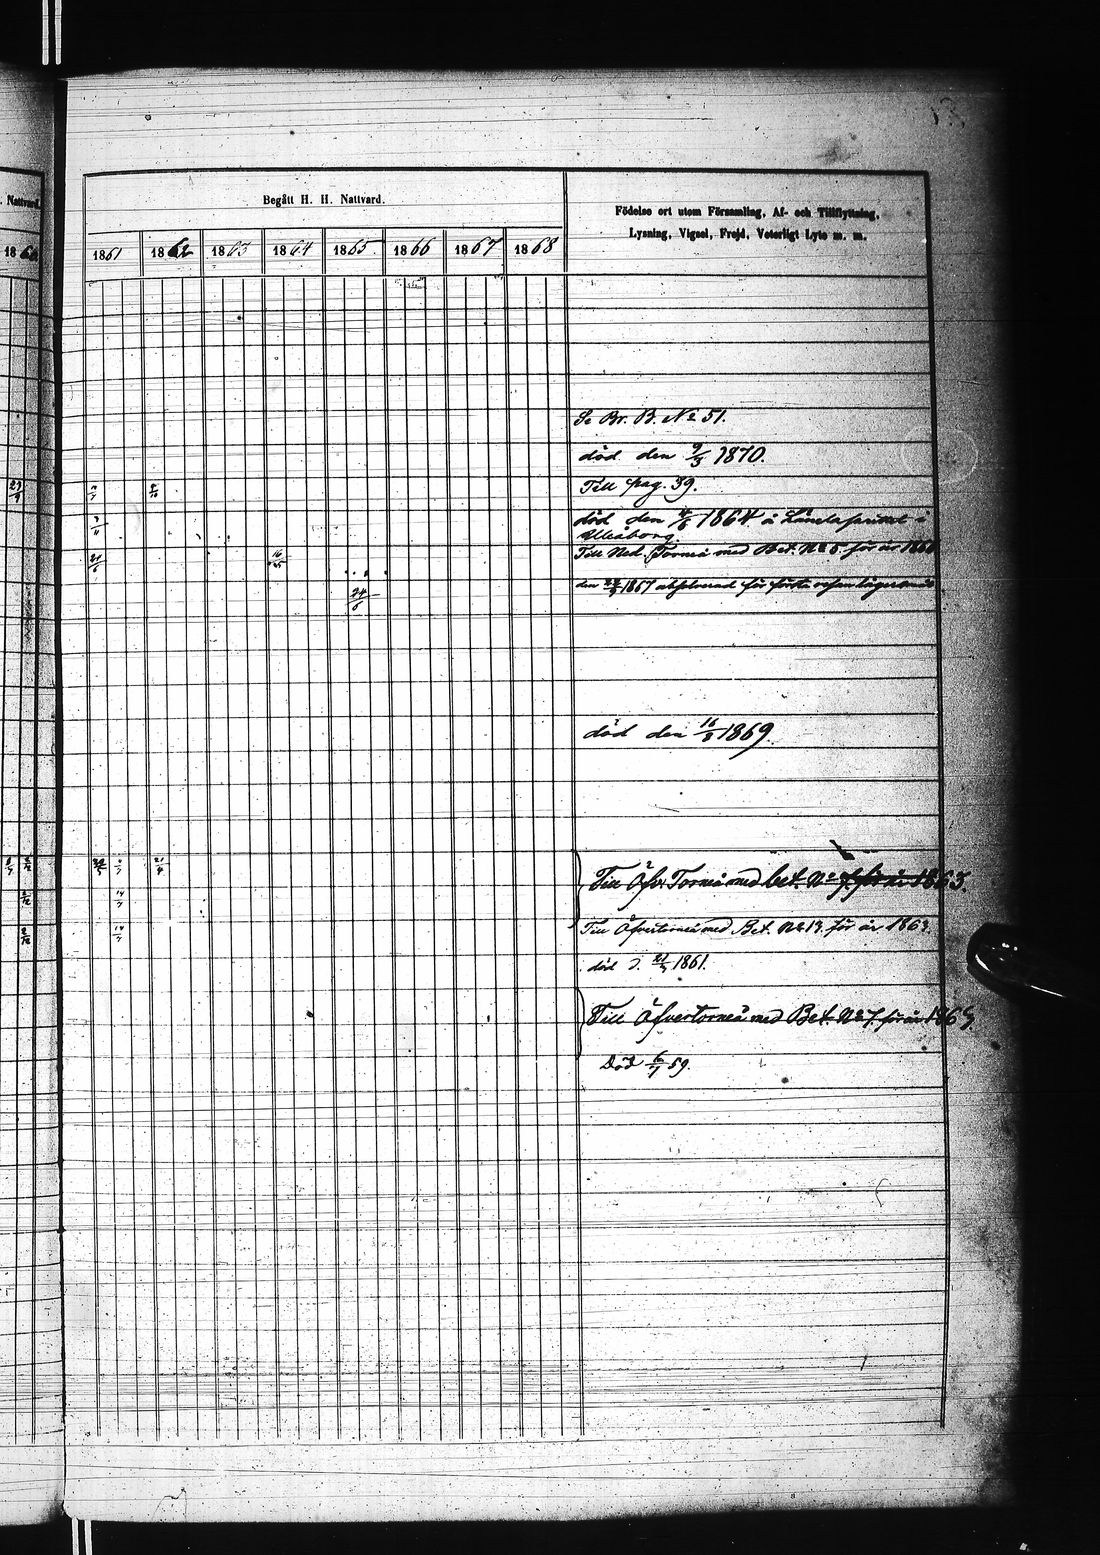 . Nattvard.
Begått H. H. Nattvard.
Födelse ort utom Församling, Af- och Tillflyttning,
Lysning, Vigsel, Frejd, Veterligt Lyte m. m.
1860
1861 1862 1863 1864 1865 1866 1867 1868
Se Br. B. No 51.
död den 9/3 1870.
23/9 2/10 Till pag. 39.
död den 1864 å Länelasarettet i
Uleåborg.
Till Ned. Torneå med Bet. No 5 för år 186
24/6
den 1867 absolverad för första resan lägersmål
död den 16/3 1869.
21/4
Till Öfv. Torneå med bet. No 7 för år 1863.
14/7
Till Öfvertorneå med Bet. No 13. för år 1863.
14/7
död d. 1861.
Till Öfvertorneå med Bet. No 7. för år 1863
Död 6/7 59.